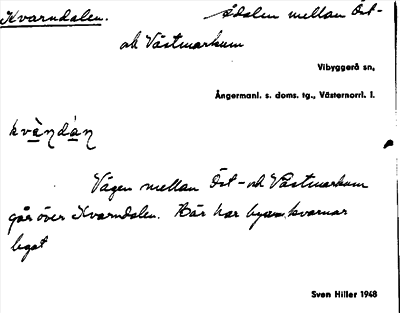 Kvarndalen. Ådalen mellan Öst-
och Västmarkum
Vibyggerå sn,
Ångermanl. s. doms. tg., Västernorrl. l.
kvà̠ṇdá̠n
Vägen mellan Öst- och Västmarkum
går över Kvarndalen. Här har byns kvarnar
legat
Sven Hiller 1948